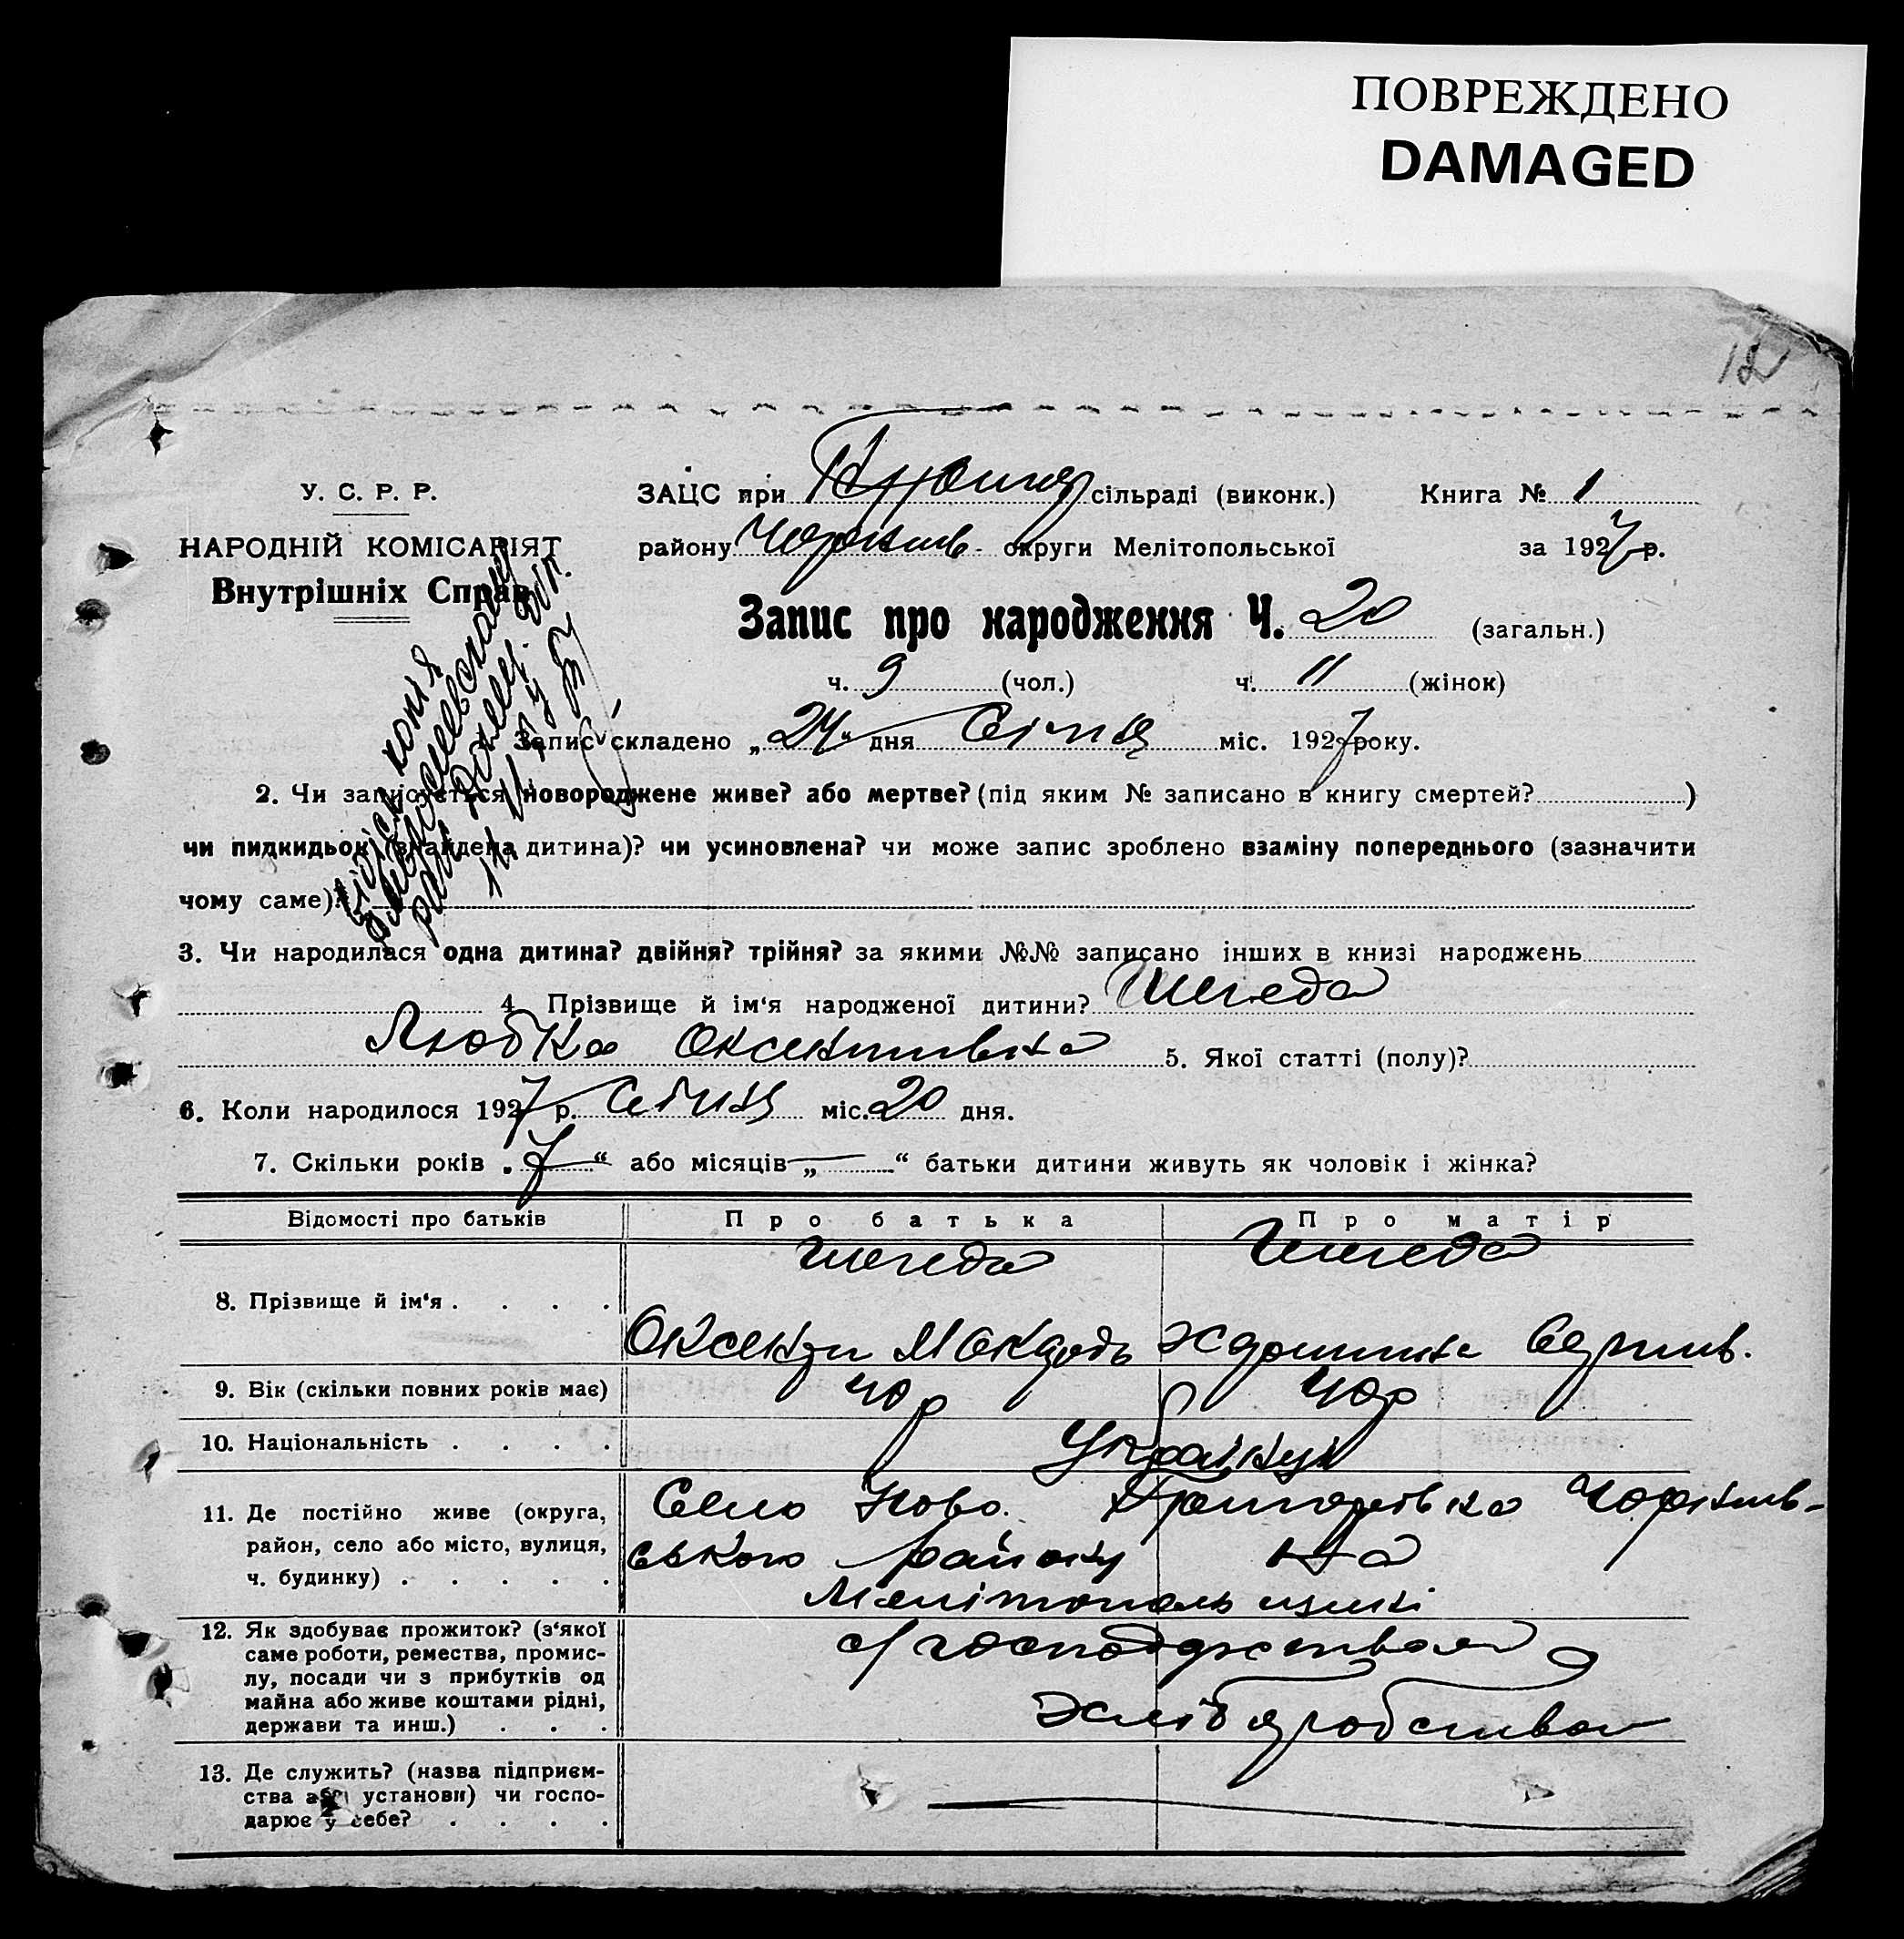 ПОВРЕЖДЕНО
DAMAGED
12
У. С. Р. Р.
НАРОДНІЙ КОМІСАРІЯТ
Внутрішніх Справ
ЗАЦС при сільраді (виконк.) Книга № 1
району округи Мелітопольської за 1927 р.
Запис про народження Ч. 20 (загальн.)
ч. 9 (чол.) ч. 11 (жінок)
Запис складено „24“ дня Січня міс. 1927 року.
2. Чи записується новороджене живе? або мертве? (під яким № записано в книгу смертей? )
чи пидкидьок (знайдена дитина)? чи усиновлена? чи може запис зроблено взаміну попереднього (зазначити
чому саме)?
3. Чи народилася одна дитина? двійня? трійня? за якими №№ записано інших в книзі народжень
4. Прізвище й ім‘я народженої дитини? Шегеда
Любка Оксентивна 5. Якої статті (полу)?
6. Коли народилося 1927 р. Січня міс. 20 дня.
7. Скільки років „7“ або місяців „—“ батьки дитини живуть як чоловік і жінка?
Відомості про батьків Про батька Про матір
8. Прізвище й ім‘я . . . . Шегеда Шегеда
9. Вік (скільки повних років має) 40 р 40 р
10. Національність . . . . Українці
11. Де постійно живе (округа,
район, село або місто, вулиця,
ч. будинку) . . . . .
Село Ново
ського району на
Мелітопольщині
12. Як здобуває прожиток? (з‘якої
саме роботи, ремества, промис-
лу, посади чи з прибутків од
майна або живе коштами рідні,
держави та инш.) . . .
с/господарством
хліборобством
13. Де служить? (назва підприєм-
ства або установи) чи госпо-
дарює у себе? . . . .